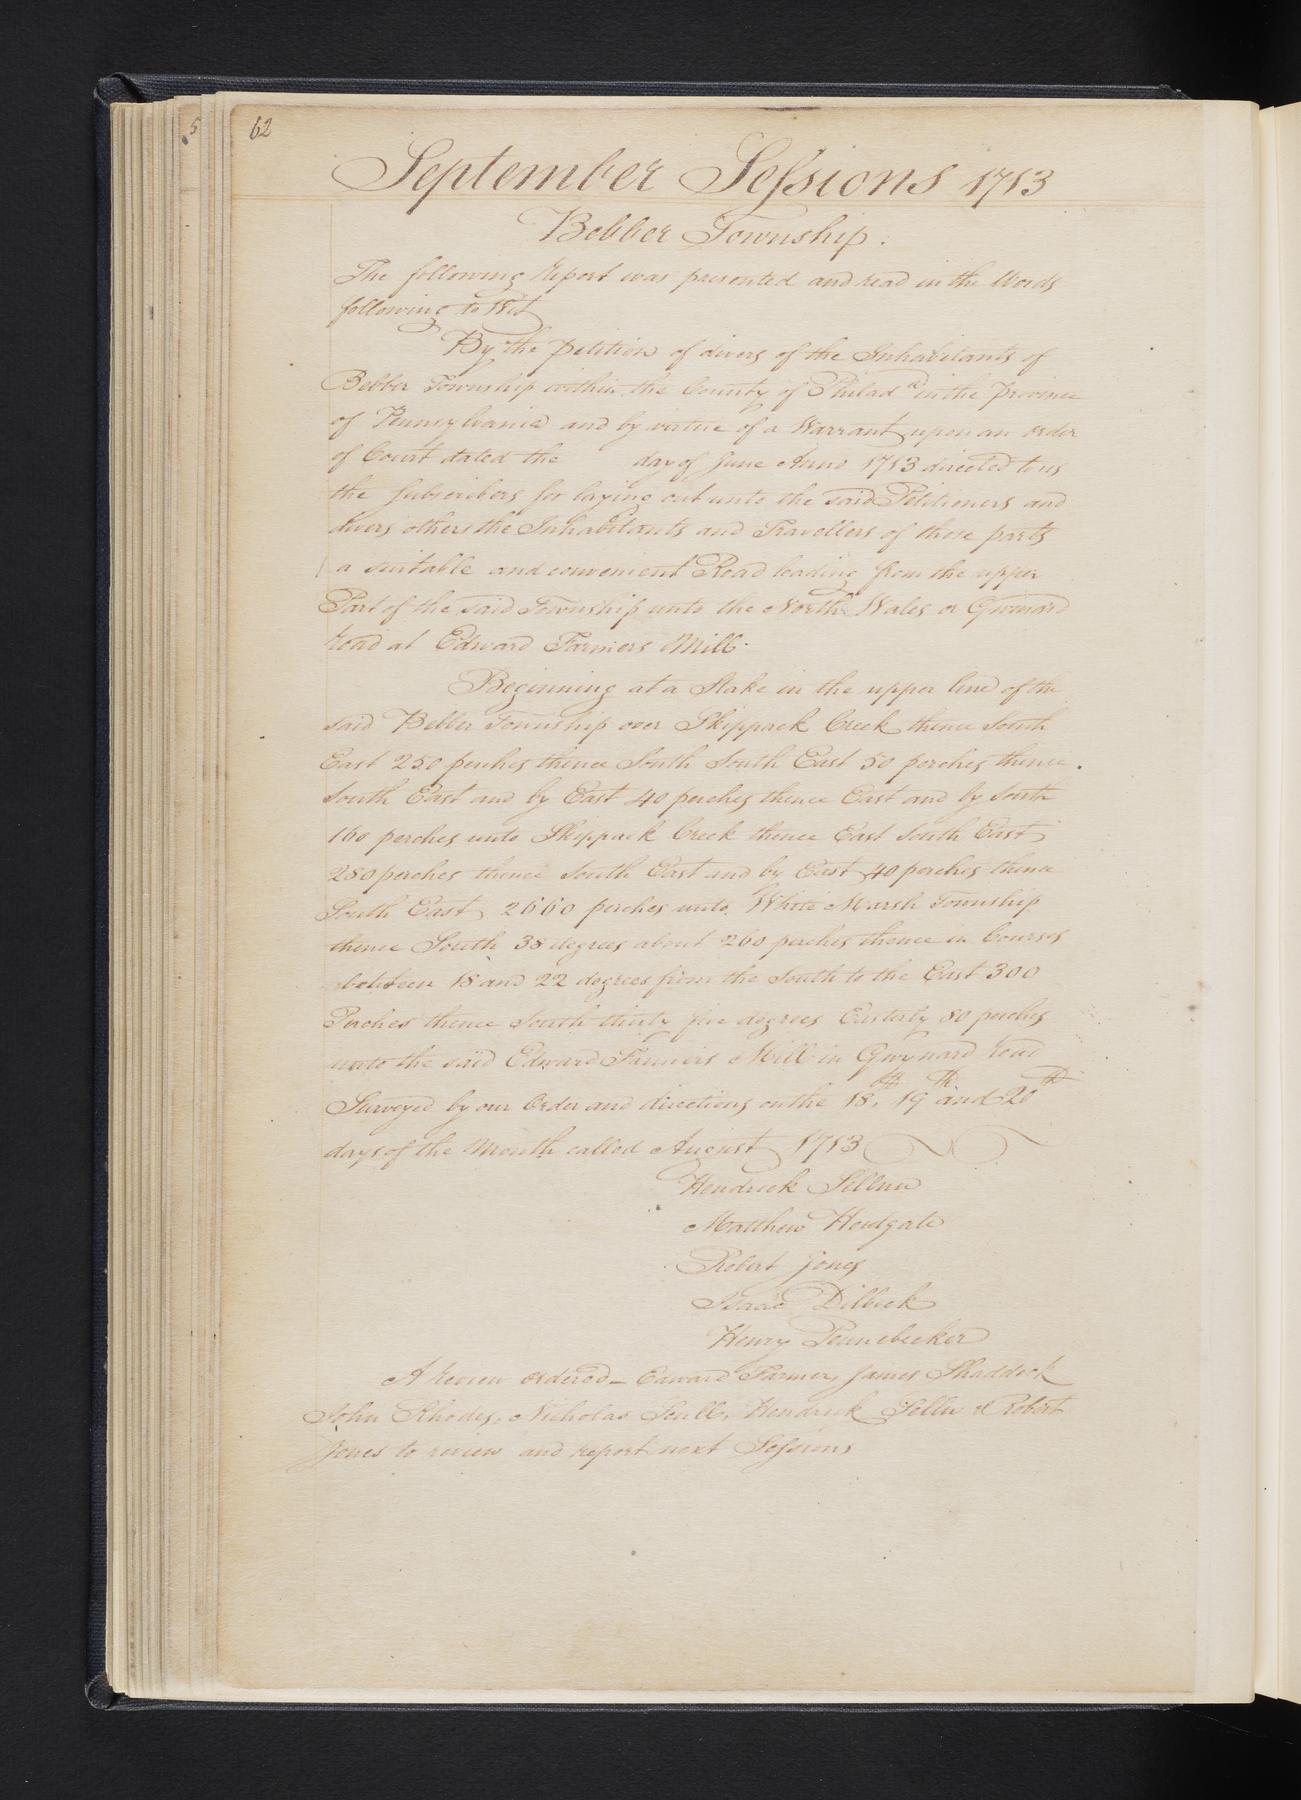 5
62
September Sessions 1713
Bebber Township.
The following report was presented and read in the Words
following to Wit
By the Petition of divers of the Inhabitants of
Bebber Township within the County of Philad.a in the Province
of Pennsylvania and by virtue of a Warrant upon an order
of Court dated the day of June Anno 1713 directed to us
the subscribers for laying out unto the said Petitioners and
divers others the Inhabitants and Travellers of those parts
a suitable and convenient Road leading from the upper
Part of the said Township unto the North Wales or Gwinard
road at Edward Farmers Mill.
Beginning at a Stake in the upper line of the
said Bebber Township over Skippack Creek thence South
East 250 perches thence South South East 50 perches thence
South East and by East 40 perches thence East and by South
160 perches unto Skippack Creek thence East South East
280 perches thence South East and by East 40 perches thence
South East 2660 perches unto White Marsh Township
thence South 38 degrees about 260 perches thence in Courses
between 18 and 22 degrees from the South to the East 300
Perches thence South thirty five degrees Easterly 80 perches
unto the said Edward Farmers Mill in Gwynard road
Surveyed by our Order and directions on the 18th, 19th and 20th
days of the Month called August 1713
Hendrick Sellen
Matthew Houlgate
Robert Jones
Isaac Dilbeck
Henry Pennebecker
A review ordered – Edward Farmer, James Shaddock
John Rhodes, Nicholas Scull, Hendrick Sellen & Robert
Jones to review and report next Sessions